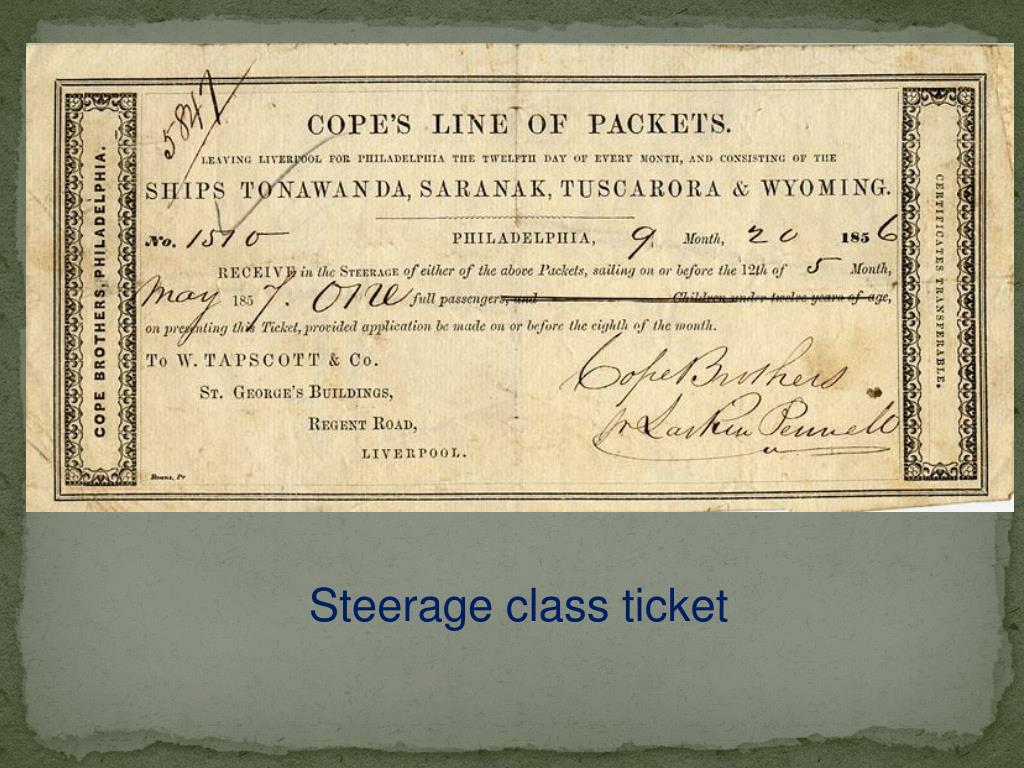 5847
COPE'S LINE OF PACKETS.
LEAVING LIVERPOOL FOR PHILADELPHIA THE TWELFTH DAY OF EVERY MONTH, AND CONSISTING OF THE
SHIPS TONAWANDA, SARANAK, TUSCARORA & WYOMING.
No. 1510 PHILADELPHIA, 9 Month, 20 1856
RECEIVE in the STEERAGE of either of the above Packets, sailing on or before the 12th of 5 Month,
May 1857. One full passengers, and Children under twelve years of age,
on presenting this Ticket, provided application be made on or before the eighth of the month.
To W. TAPSCOTT & Co.
ST. GEORGE'S BUILDINGS,
REGENT ROAD,
LIVERPOOL.
Cope Brothers
pr Larkin Pennell
COPE BROTHERS, PHILADELPHIA.
CERTIFICATES TRANSFERABLE.
Steerage class ticket